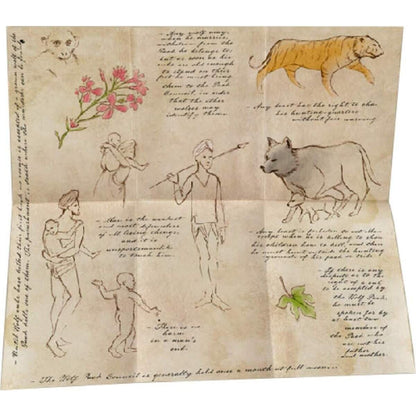 - Any wolf may,
when he marries,
withdraw from the
Pack he belongs to
but as soon as his
cubs are old enough
to stand on their
feet he must bring
them to the Pack
Council in order
that the other
wolves may
identify them.
- Any beast has the right to change
his hunting-quarters
without fair warning
- Man is the weakest
and most defenseless
of all living things,
and it is
unsportsmanlike
to touch him.
- Any beast is forbidden to eat man
except when he is killing to show
his children how to kill, and then
he must hunt outside the hunting
grounds of his pack or tribe.
- If there is any
dispute as to the
right of a cub
to be accepted by
the Wolf Pack,
he must be
spoken for by
at least two
members of
the Pack who
are not his
father
and mother.
- There is no
harm
in a man's
cub.
- The Wolf Pack Council is generally held once a month at full moon...
- Until Wolf cubs have killed their first buck no excuse is accepted if a grown wolf of the
Pack kills one of them. The punishment is death where the murderer can be found.